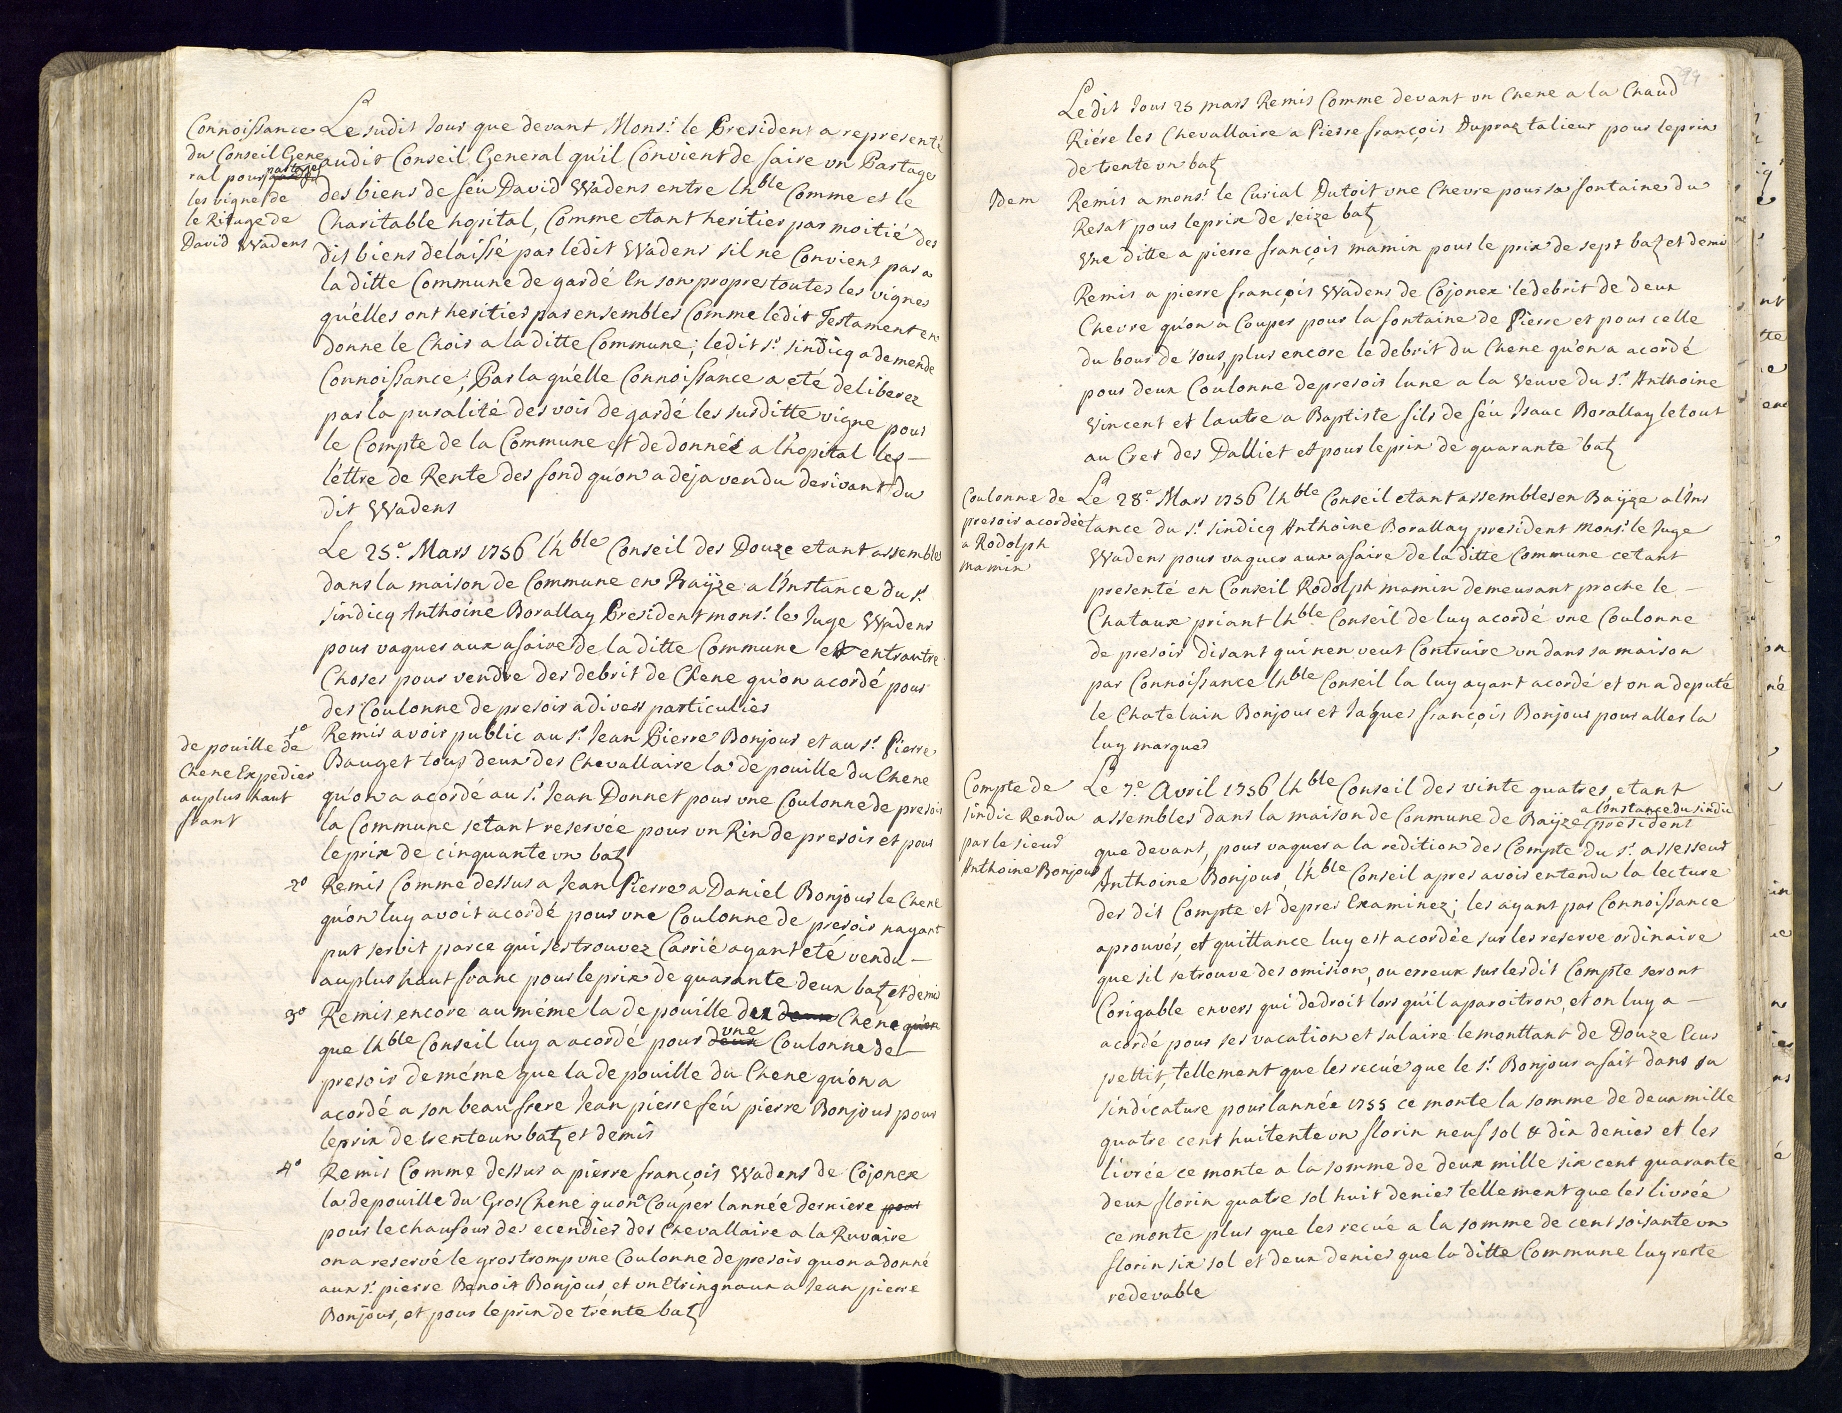 Connoissance
du Conseil Gene
ral pour partager
les vigne de
le Ritage de
David Wadens
Le sudit Jour que devant Monsr. le President a representé
audit Conseil General qu'il Convient de faire un Partage
des biens de féu David Wadens entre lhble Comme et le
Charitable hopital, Comme etant heritier par moitié des
dit biens delaissé par ledit Wadens sil ne Convient pas a
la ditte Commune de gardé En son propres toutes les vignes
qu'elles ont heritier par ensembles Comme ledit Testament en
donne le Choix a la ditte Commune; ledit sr. sindicq a demende
Connoissance; Par la qu'elle Connoissance a eté deliberez
par la puralité des vois de gardé les susditte vigne pour
le Compte de la Commune et de donnée a l'hopital les
lettre de Rente des fond qu'on a déja vendu derivant du
dit Wadens
Le 25e. Mars 1756 l'hble Conseil des Douze etant assembles
dans la maison de Commune en Baÿze a l'Instance du sr.
sindicq Anthoine Borallay President monsr. le Juge Wadens
pour vaquer aux afaire de la ditte Commune et entrautre
Choses pour vendre des debrit de Chene qu'on acordé pour
des Coulonne de presoir a divers particulies
de pouille de
Chene Expedier
au plus haut
frant
1o Remis a voix public au sr. Jean Pierre Bonjour et au sr. Pierre
Bauget tous deux des Chevallaire la de pouille du Chene
qu'on a acordé au sr. Jean Donnet pour une Coulonne de presoir
la Commune setant reservée pour un Rin de presoir et pour
le prix de cinquante un batz
2o Remis Comme dessus a Jean Pierre a Daniel Bonjour le Chene
qu'on luy avoit acordé pour une Coulonne de presoir nayant
put servit parce qui s'es trouvez Carrié ayant eté vendu
au plus haut franc pour le prix de quarante deux batz et demi
3o Remis encore au méme la de pouille dex deux Chene qu'on
que lhble Conseil luy a acordé pour deux une Coulonne de
presoir de méme que la de pouille du Chene qu'on a
acordé a son beau frere Jean pierre féu pierre Bonjour pour
le prix de trenteun batz et demis
4o Remis Comme dessus a pierre françois Wadens de Cojonex
la de pouille du Gros Chene quon a Couper lannée derniere pour
pour le chaufour des ecendier des Chevallaire a la Ruvaire
on a reservé le gros tromp une Coulonne de presoir quon a donné
aux sr. pierre Benoit Bonjour, et un Etringnaux a Jean pierre
Bonjour, et pour le prix de trente batz
94
Ledit Jour 25 mars Remis Comme devant un Chene a la Chaud
Riére les Chevallaire a Pierre françois Dupraz talieur pour le prix
de trente un batz
Idem
Remis a monsr. le Curial Dutoit une Chevre pour sa fontaine du
Resat pour le prix de seize batz
Une Ditte a pierre françois mamin pour le prix de sept batz et demi
Remis a pierre françois Wadens de Cojonex le debrit de deux
Chevre qu'on a Couper pour la fontaine de Pierre et pour celle
du bour de sous plus encore le debrit du Chene qu'on a acordé
pour deux Coulonne de presoir lune a la Veuve du sr. Anthoine
Vincent et lautre a Baptiste fils de féu Isaac Borallay le tout
au Cret des Dalliet et pour le prix de quarante batz
Coulonne de
presoir acordée
a Rodolph
mamin
Le 28e. Mars 1756 lhble Conseil etant assembles en Baÿze a l'Ins
tance du sr. sindicq Anthoine Borallay president monsr. le Juge
Wadens pour vaquer aux afaire de la ditte Commune cetant
presenté en Conseil Rodolph mamin demeurant proche le
Chataux priant lhble Conseil de luy acordé une Coulonne
de presoir disant qui nen veut Contruire un dans sa maison
par Connoissance lhble Conseil la luy ayant acordé et on a deputé
le Chatelain Bonjour et Jaques françois Bonjour pour aller la
luy marquer
Compte de
sindic Rendu
par le sieur
Anthoine Bonjour
Le 7e. Avril 1756 lhble Conseil des vinte quatres etant
assembles dans la maison de Commune de Baÿze a l'Instance du sindic president
que devant, pour vaquer a la redition des Compte du sr. assesseur
Anthoine Bonjour, l'hble Conseil apres avoir entendu la lecture
des dit Compte et de pres Examinez; les ayant par Connoissance
aprouvés, et quittance luy est acordée sur les reserve ordinaire
que sil se trouve des omision, ou erreux sur lesdit Compte seront
Corigable envers qui de droit lors qu'il aparoitron, et on luy a
acordé pour ses vacation et salaire le monttant de Douze Ecus
pettit, tellement que les recuë que le sr. Bonjour a fait dans sa
sindicature pour lannée 1755 ce monte la somme de deux mille
quatre cent huitente un florin neuf sol & dix denier et les
livrée ce monte a la somme de deux mille six cent quarante
deux florin quatre sol huit denier tellement que les livrée
ce monte plus que les recué a la somme de cent soisante un
florin six sol et deux denier que la ditte Commune luy reste
redevable